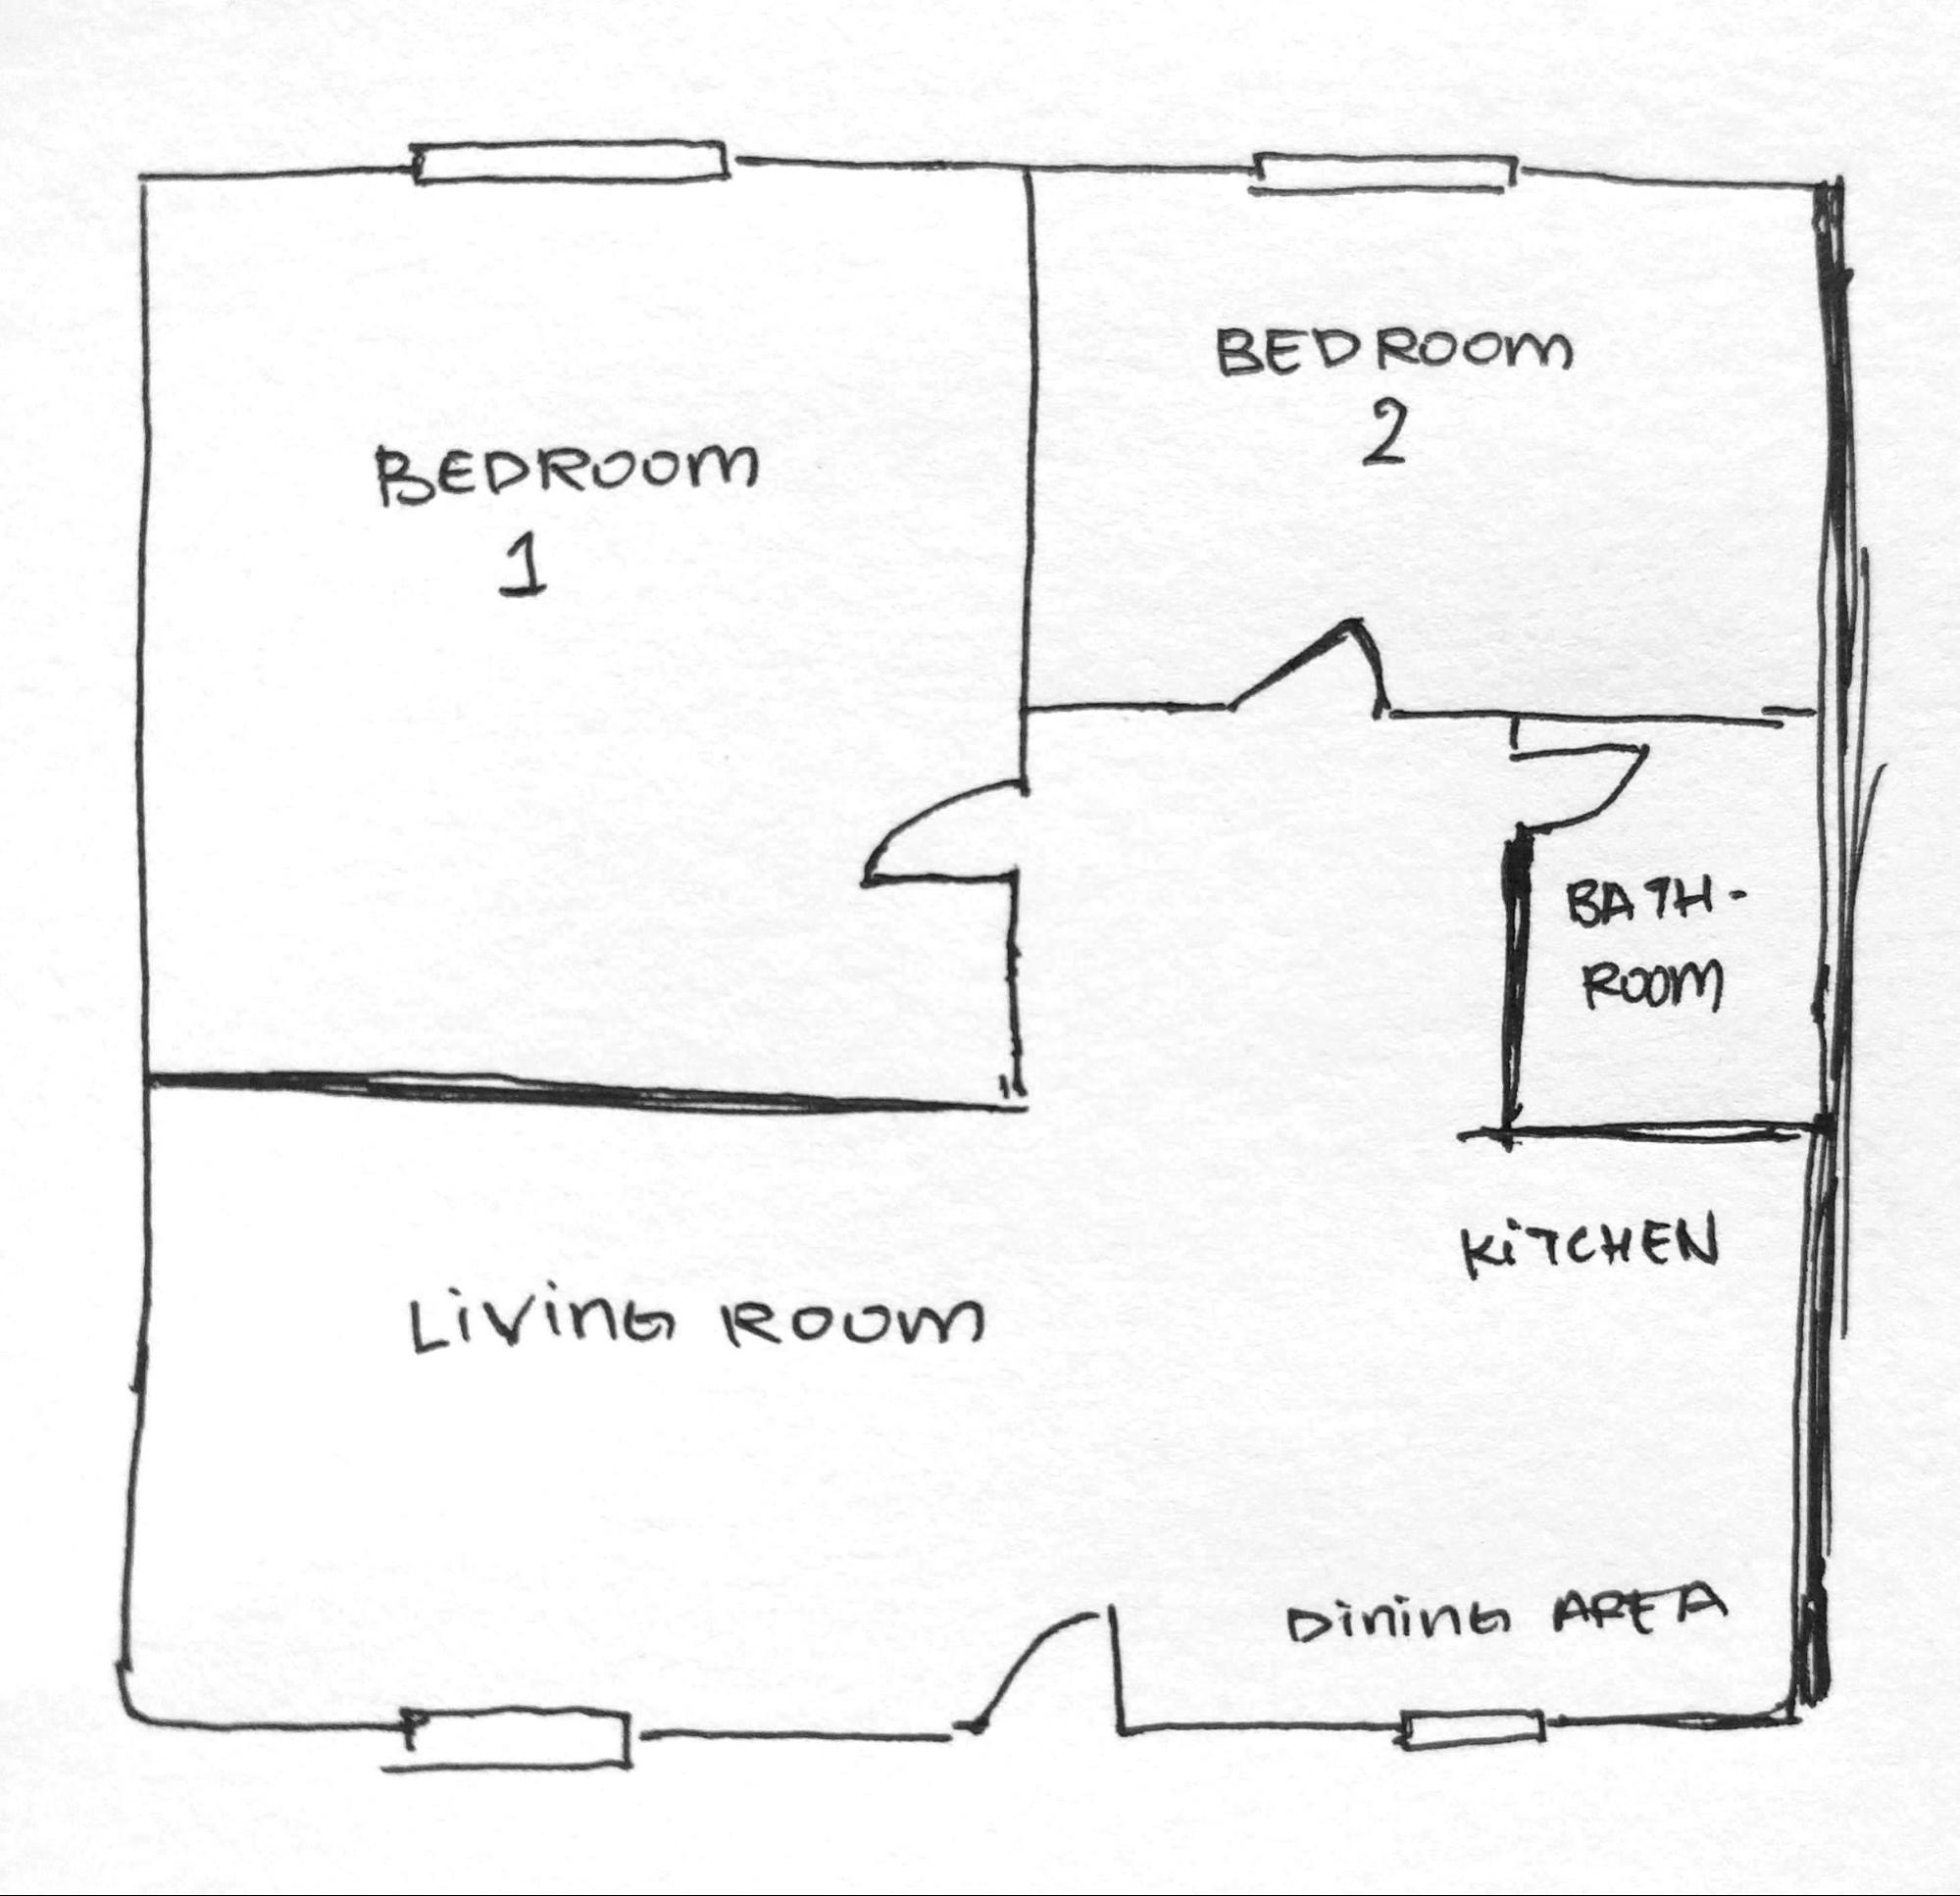 BEDROOM
1
BEDROOM
2
BATH-
ROOM
KiTCHEN
LiViNG ROOM
DiNiNG AREA